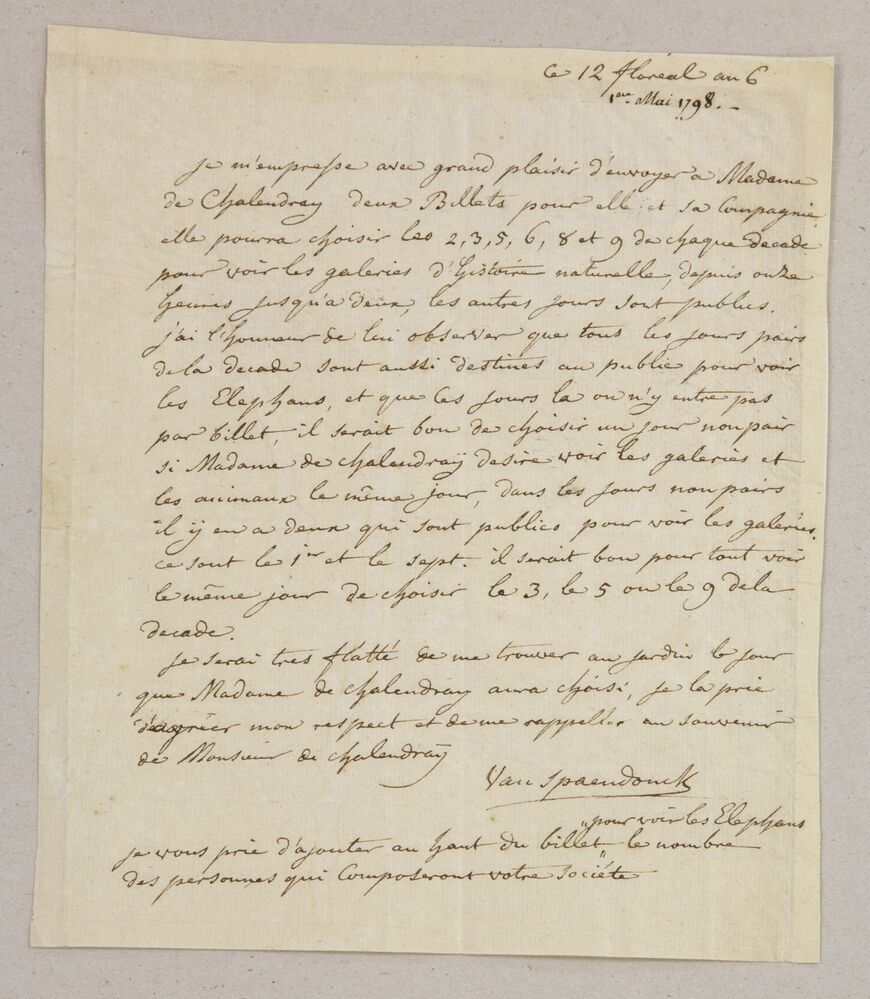 ce 12 floreal an 6
1er Mai 1798.
je m'empresse avec grand plaisir d'envoyer a Madame
de Chalendray deux Billets pour elle et sa Compagnie,
elle pourra choisir les 2, 3, 5, 6, 8 et 9 de chaque decade
pour voir les galeries d'histoire naturelle, depuis onze
heures jusqu'a deux, les autres jours sont publics.
j'ai l'honneur de lui observer que tous les jours pairs
de la decade sont aussi destinés au public pour voir
les Elephans, et que ces jours la on n'y entre pas
par billet, il serait bon de choisir un jour non pair
si Madame de chalendraÿ desire voir les galeries et
les animaux le même jour, dans les jours non pairs
il ÿ en a deux qui sont publics pour voir les galeries.
ce sont le 1er et le sept. il serait bon pour tout voir
le même jour de choisir le 3, le 5 ou le 9 de la
decade.
je serai tres flatté de me trouver au jardin le jour
que Madame de chalendray aura choisi, je la prie
d'agréer mon respect et de me rappeller au souvenir
de Monsieur de chalendraÿ
Van Spaendonck
"pour voir les Elephans
je vous prie d'ajouter au haut du billet " le nombre
des personnes qui Composeront votre Sociéte